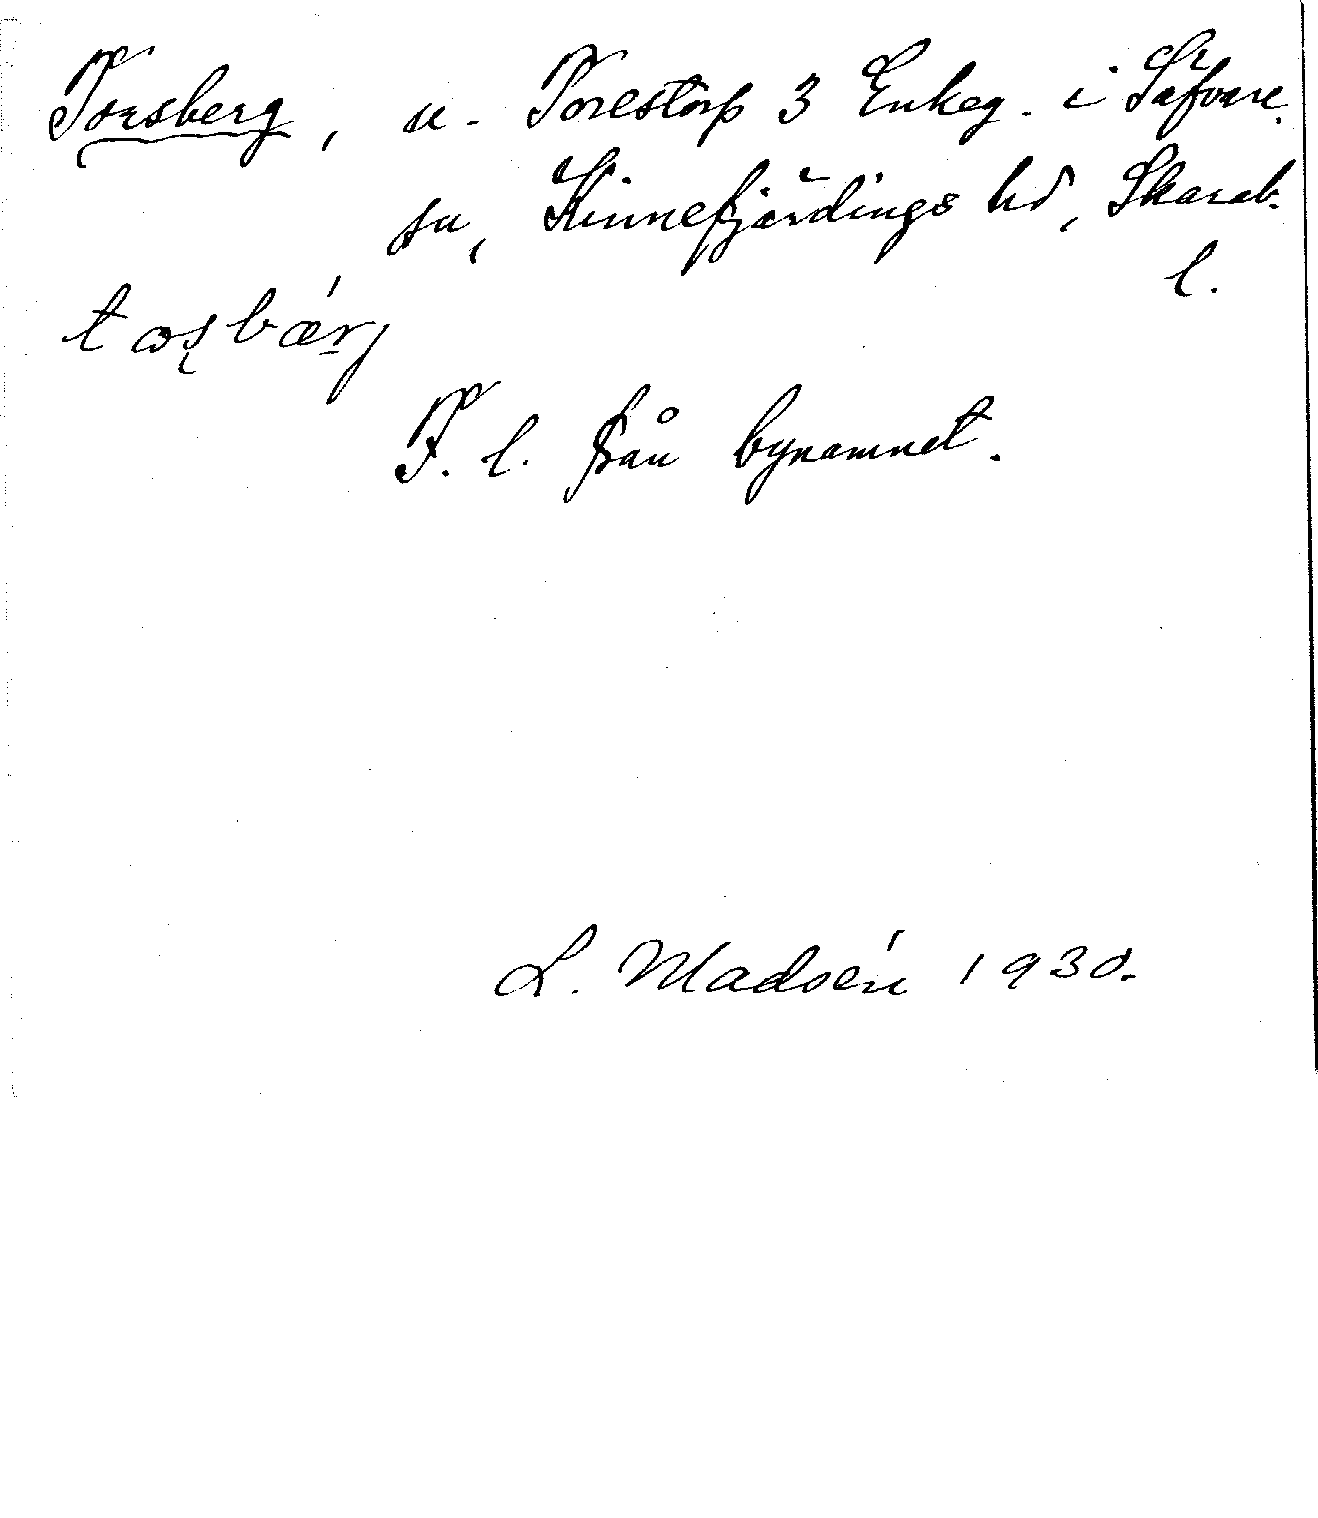 Torsberg, u. Torestorp 3 Enkeg. i Säfvare
sn, Kinnefjärdings hd, Skarab.
l.
tɷʂbǽrj
F. l. från bynamnet.
L. Madsén 1930.